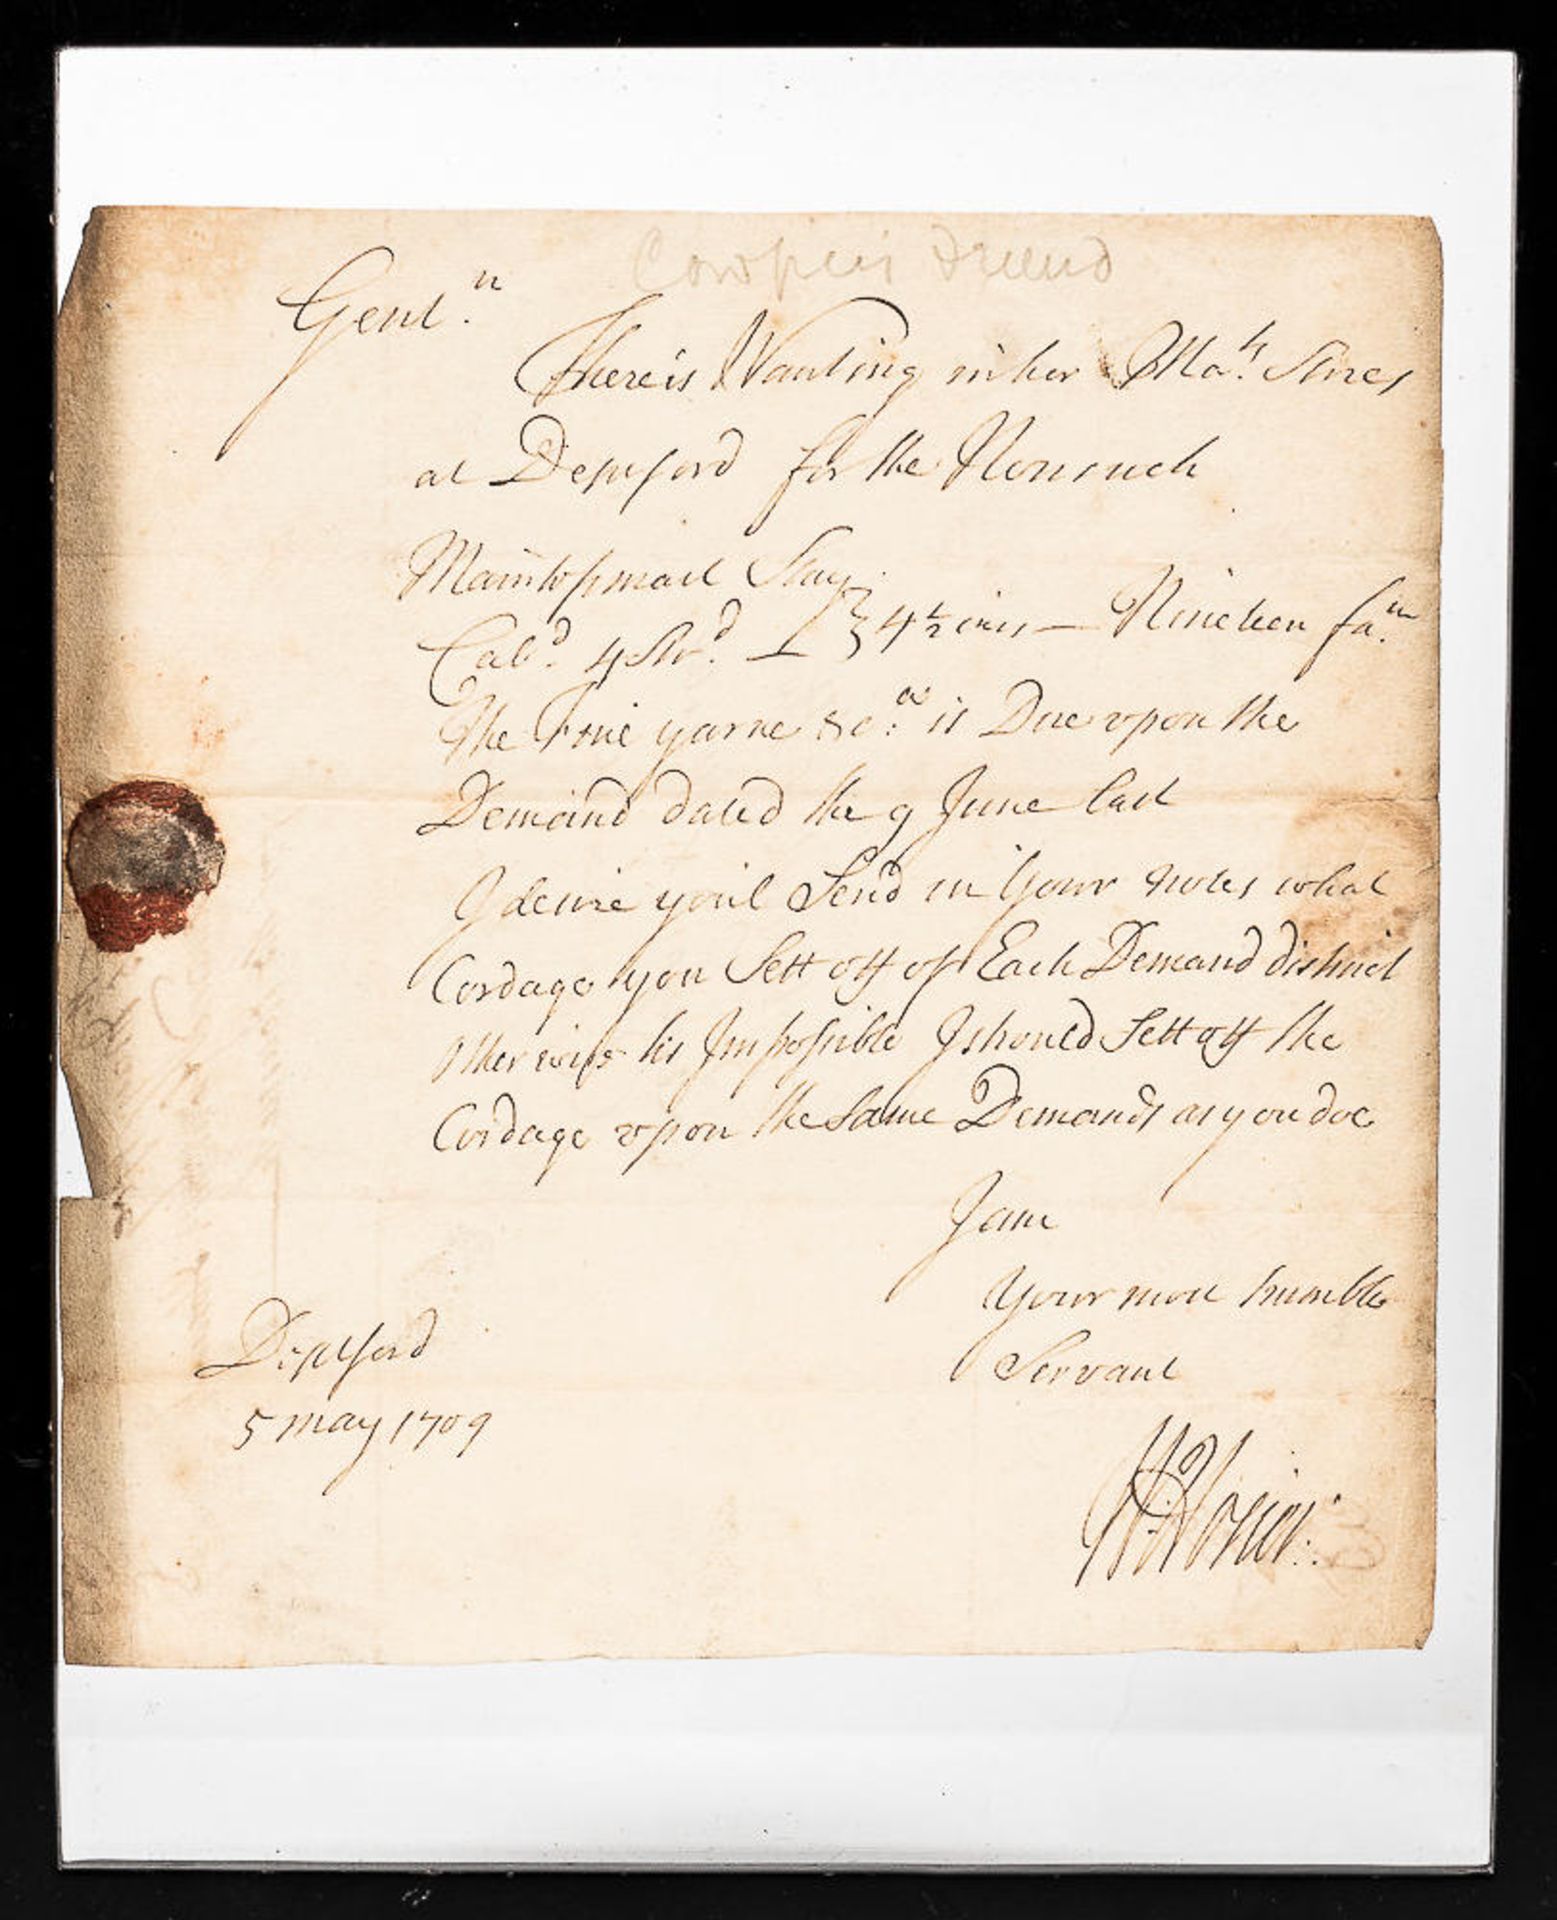 Cowper's Friend
Gent.n
There is Wanting in her Ma.ts Stores
at Deptford for the Nonsuch
Maintopmast Stay
Cab.d 4 Str.d } 4 1/2 ins — Nineteen fa.m
The Fine yarne &c.a is Due upon the
Demand dated the 9 June last
I desire you'l Send in your notes what
Cordage you Sett off of Each Demand distinct
Otherwise tis Impossible I should Sett off the
Cordage upon the Same Demands as you doe
I am
Your most humble
Servant
Deptford
5 may 1709